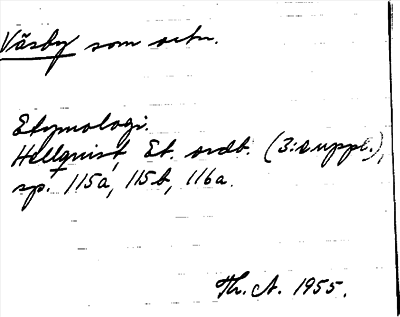 Väsby som ortn.
Etymologi.
Hellquist Et. ordb. (3:e uppl.),
sp. 115a, 115b, 116a.
Th. A. 1955.